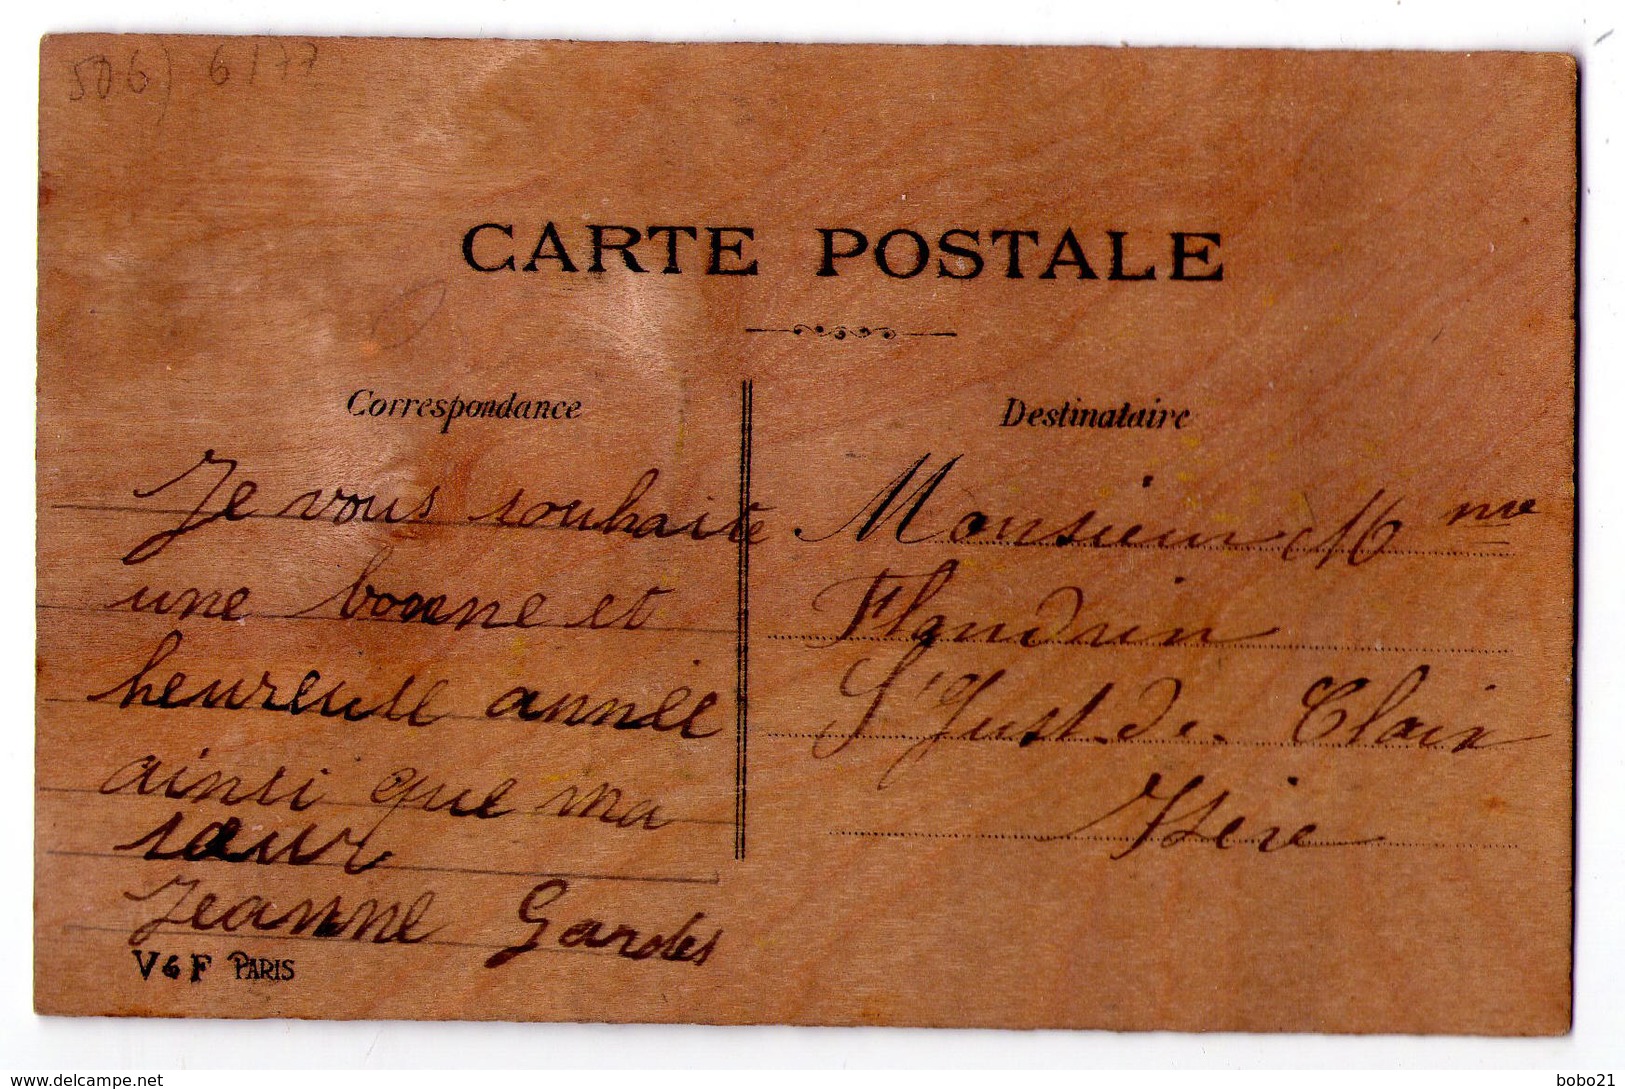 506) 6177
CARTE POSTALE
Correspondance
Je vous souhaite
une bonne et
heureuse année
ainsi que ma
sœur
Jeanne Gardes
V G F PARIS
Destinataire
Monsieur M me
Flandrin
St Just. de. Claix
Isère
www.delcampe.net
bobo21